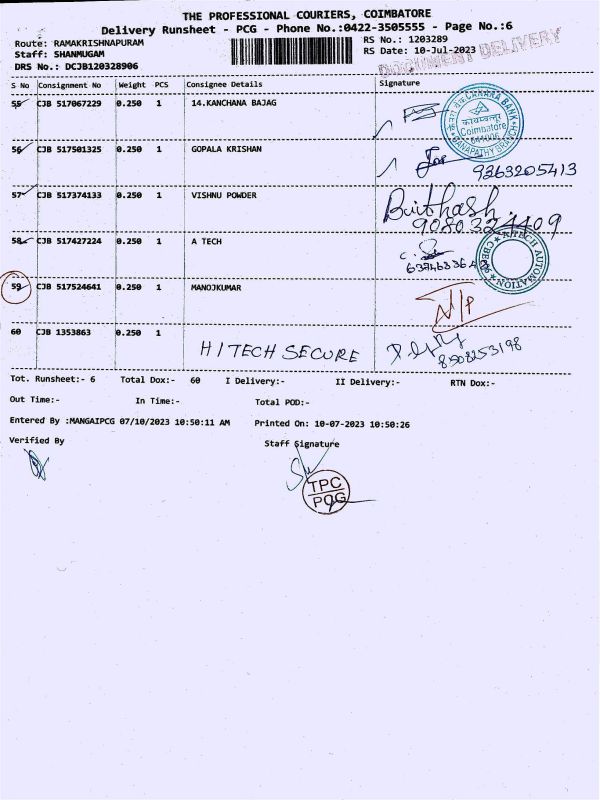 THE PROFESSIONAL COURIERS, COIMBATORE
Delivery Runsheet - PCG - Phone No.:0422-3505555 - Page No.:6
Route: RAMAKRISHNAPURAM
RS No.: 1203289
Staff: SHANMUGAM
RS Date: 10-Jul-2023
DRS No.: DCJB120328906
DOCUMENT DELIVERY
S No Consignment No Weight PCS Consignee Details Signature
55 CJB 517067229 0.250 1 14.KANCHANA BAJAG
CANARA BANK
Coimbatore
641006
GANAPATHY BRANCH
56 CJB 517501325 0.250 1 GOPALA KRISHAN
9363205413
57 CJB 517374133 0.250 1 VISHNU POWDER
9080324409
58 CJB 517427224 0.250 1 A TECH
A TECH AUTOMATION
59 CJB 517524641 0.250 1 MANOJKUMAR
60 CJB 1353863 0.250 1
HITECH SECURE
8508253198
Tot. Runsheet:- 6 Total Dox:- 60 I Delivery:- II Delivery:- RTN Dox:-
Out Time:- In Time:- Total POD:-
Entered By :MANGAIPCG 07/10/2023 10:50:11 AM Printed On: 10-07-2023 10:50:26
Verified By Staff Signature
TPC
PCG